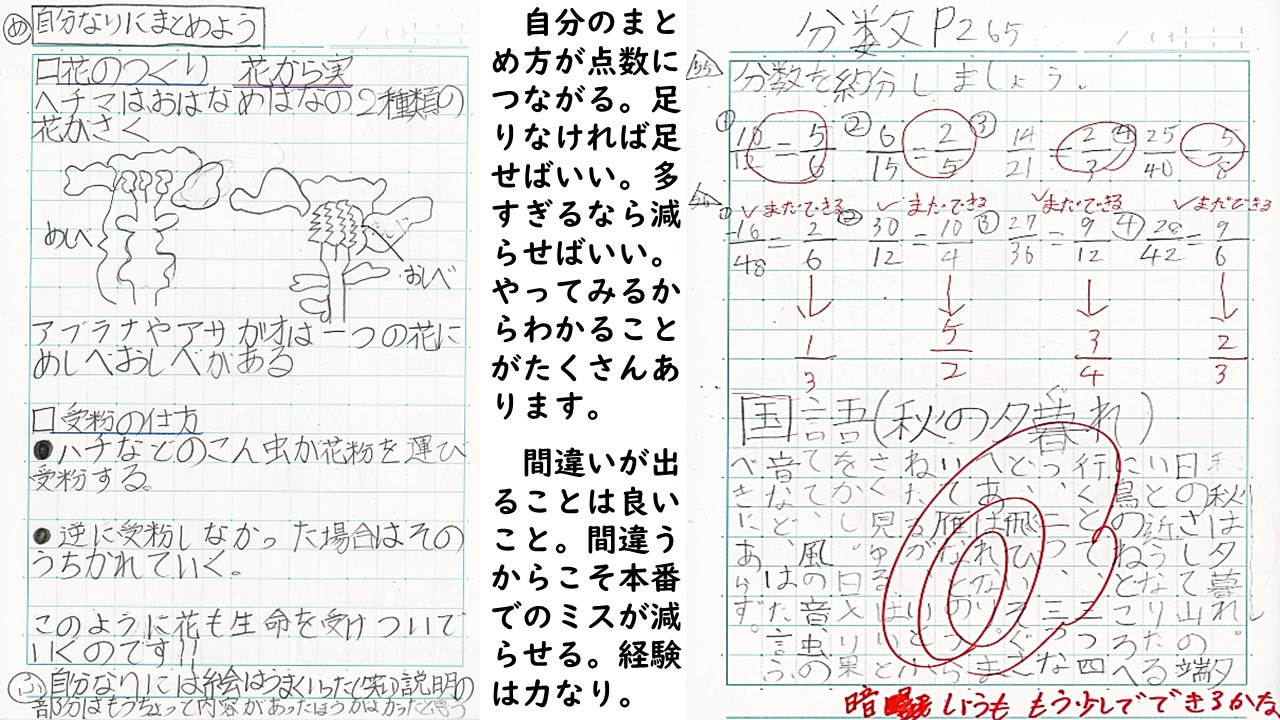 め 自分なりにまとめよう
□花のつくり 花から実
ヘチマはおばなめばなの2種類の
花がさく
めしべ
おしべ
アブラナやアサガオは一つの花に
めしべおしべがある
□受粉の仕方
●ハチなどのこん虫が花粉を運び
受粉する。
●逆に受粉しなかった場合はその
うちかれていく。
このように花も生命を受けついで
いくのです!!
自分なりには絵はうまくいった(笑)説明の
部分はもうちょっと内容があったほうがよかったと思う
自分のまと
め方が点数に
つながる。足
りなければ足
せばいい。多
すぎるなら減
らせばいい。
やってみるか
らわかること
がたくさんあ
ります。
間違いが出
ることは良い
こと。間違う
からこそ本番
でのミスが減
らせる。経験
は力なり。
分数 P265
分数を約分しましょう。
① 10/12 = 5/6 ② 6/15 = 2/5 ③ 14/21 = 2/3 ④ 25/40 = 5/8
まだできる まだできる まだできる まだできる
① 16/48 = 2/6 ② 30/12 = 10/4 ③ 27/36 = 9/12 ④ 28/42 = 9/6
1/3 5/2 3/4 2/3
国言語(秋の夕暮れ)
秋は夕暮れ。
日のさして山の端
いと近うなりたる
に鳥のねどころへ
行くとて、三つ四
つ、二つ三つな
ど飛びいそぐ
さへあはれなり。
いて雁などのつら
ねたるがいと
さく見ゆるはいと
をかし。日入り果
てて、風の音虫の
音などはた言う
べきにあらず。
暗しょうも もう少しでできるかな